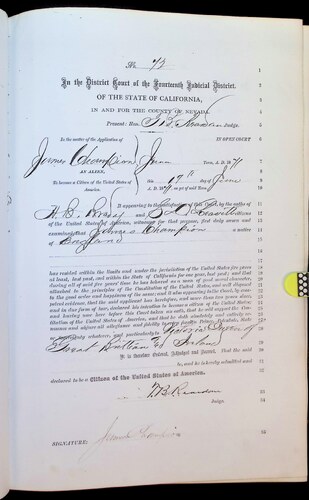 No 72
In the District Court of the Fourteenth Judicial District,
OF THE STATE OF CALIFORNIA,
IN AND FOR THE COUNTY OF NEVADA.
Present: Hon. Reardan Judge.
In the matter of the Application of IN OPEN COURT
James Champion June Term, A. D. 187
AN ALIEN,
To become a Citizen of the United States of America. 19th day of June
A. D. 187
It appearing to the satisfaction of this Court, by the oaths of
and Leavitt
citizens of the United States of America, witnesses for that purpose, first duly sworn and
examined, that James Champion a native
of England
has resided within the limits and under the jurisdiction of the United States five years
at least, last past, and within the State of California for one year, last past; and that
during all of said five years' time he has behaved as a man of good moral character,
attached to the principles of the Constitution of the United States, and well disposed
to the good order and happiness of the same; and it also appearing to the Court, by competent
evidence, that the said applicant has heretofore, and more than two years since,
and in due form of law, declared his intention to become a citizen of the United States;
and having now here before this Court taken an oath, that he will support the Constitution
of the United States of America, and that he doth absolutely and entirely renounce
and abjure all allegiance and fidelity to every foreign Prince, Potentate, State
or Sovereignty whatever, and particularly to Victoria Queen of
Great Brittian & Ireland
It is therefore Ordered, Adjudged and Decreed, That the said
be, and he is hereby admitted and
declared to be a Citizen of the United States of America.
Reardan
Judge.
SIGNATURE: James Champion